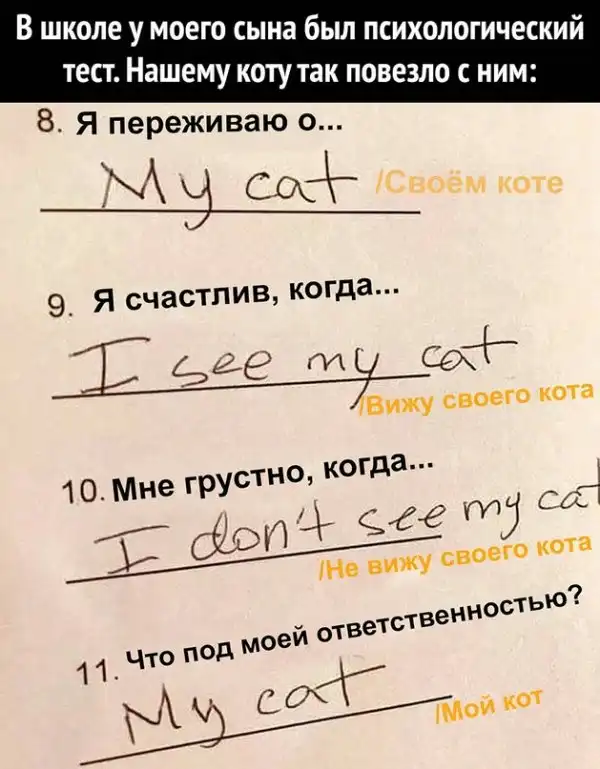 В школе у моего сына был психологический
тест. Нашему коту так повезло с ним:
8. Я переживаю о...
My cat /Своём коте
9. Я счастлив, когда...
I see my cat
/Вижу своего кота
10. Мне грустно, когда...
I don't see my cat
/Не вижу своего кота
11. Что под моей ответственностью?
My cat
/Мой кот